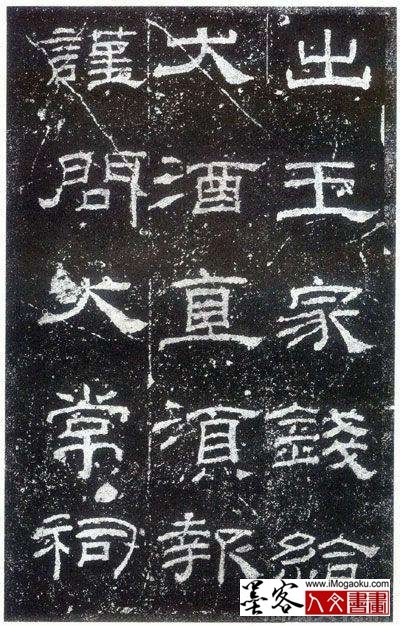 出王家錢給
大酒直須報
謹問大常祠
墨客
www.iMogaoku.com
人文書畫